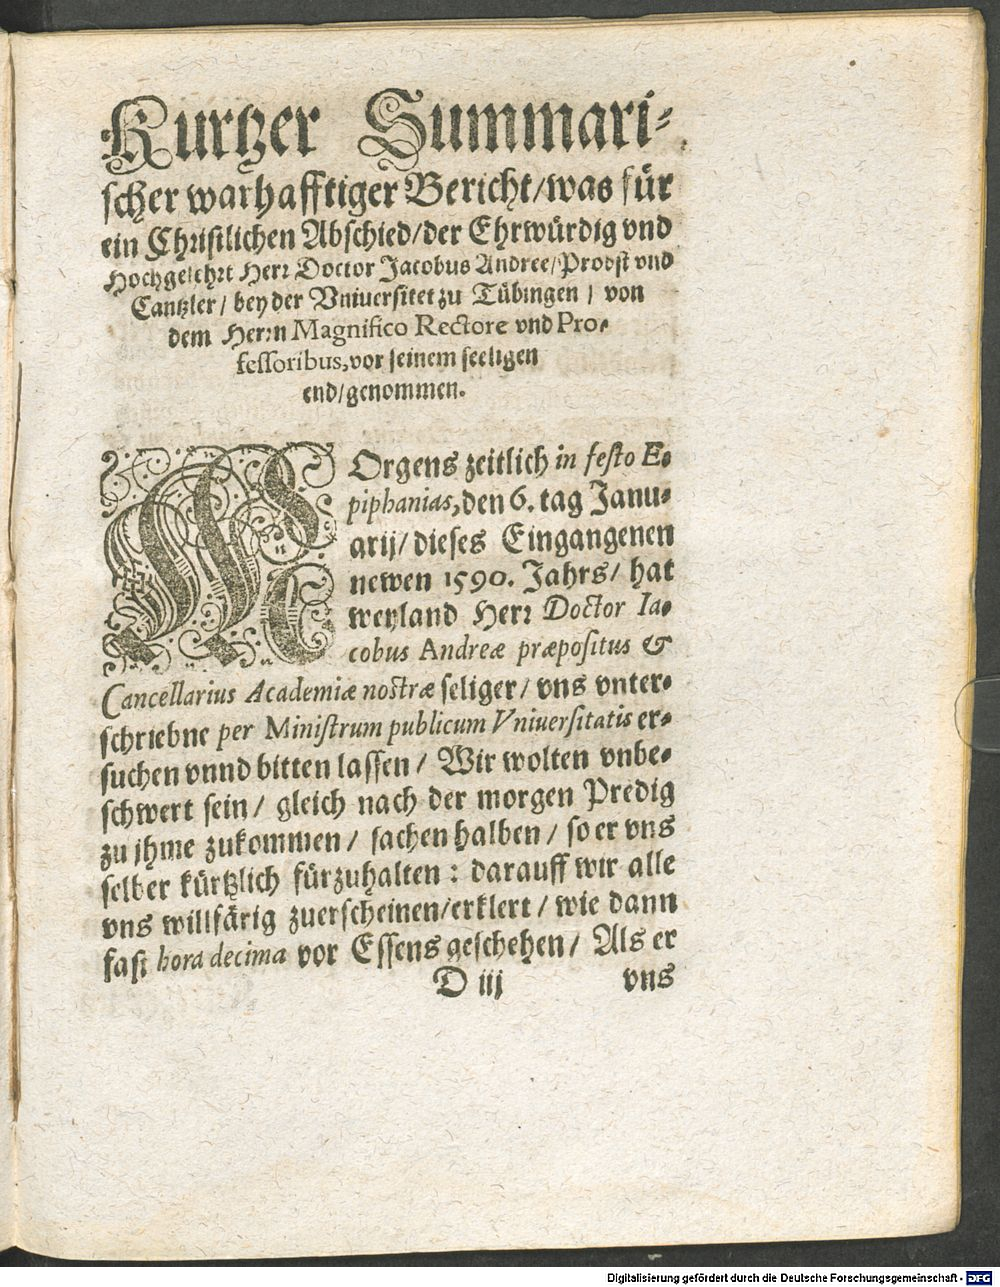 Kurtzer Summari-
scher warhafftiger Bericht/was für
ein Christlichen Abschied/der Ehrwürdig vnd
Hochgelehrt Herr Doctor Jacobus Andree/Probst vnd
Cantzler/ bey der Vniuersitet zu Tübingen/ von
dem Herrn Magnifico Rectore vnd Pro-
fessoribus,vor seinem seeligen
end/genommen.
MOrgens zeitlich in festo E-
piphanias,den 6. tag Janu-
arij/dieses Eingangenen
newen 1590. Jahrs/ hat
weyland Herr Doctor Ia-
cobus Andreæ præpositus &
Cancellarius Academiæ nostræ seliger/ vns vnter-
schriebne per Ministrum publicum Vniuersitatis er-
suchen vnnd bitten lassen/ Wir wolten vnbe-
schwert sein/ gleich nach der morgen Predig
zu jhme zukommen/ sachen halben/ so er vns
selber kürtzlich fürzuhalten: darauff wir alle
vns willfärig zuerscheinen/erklert/ wie dann
fast hora decima vor Essens geschehen/ Als er
D iij vns
Digitalisierung gefördert durch die Deutsche Forschungsgemeinschaft - DFG